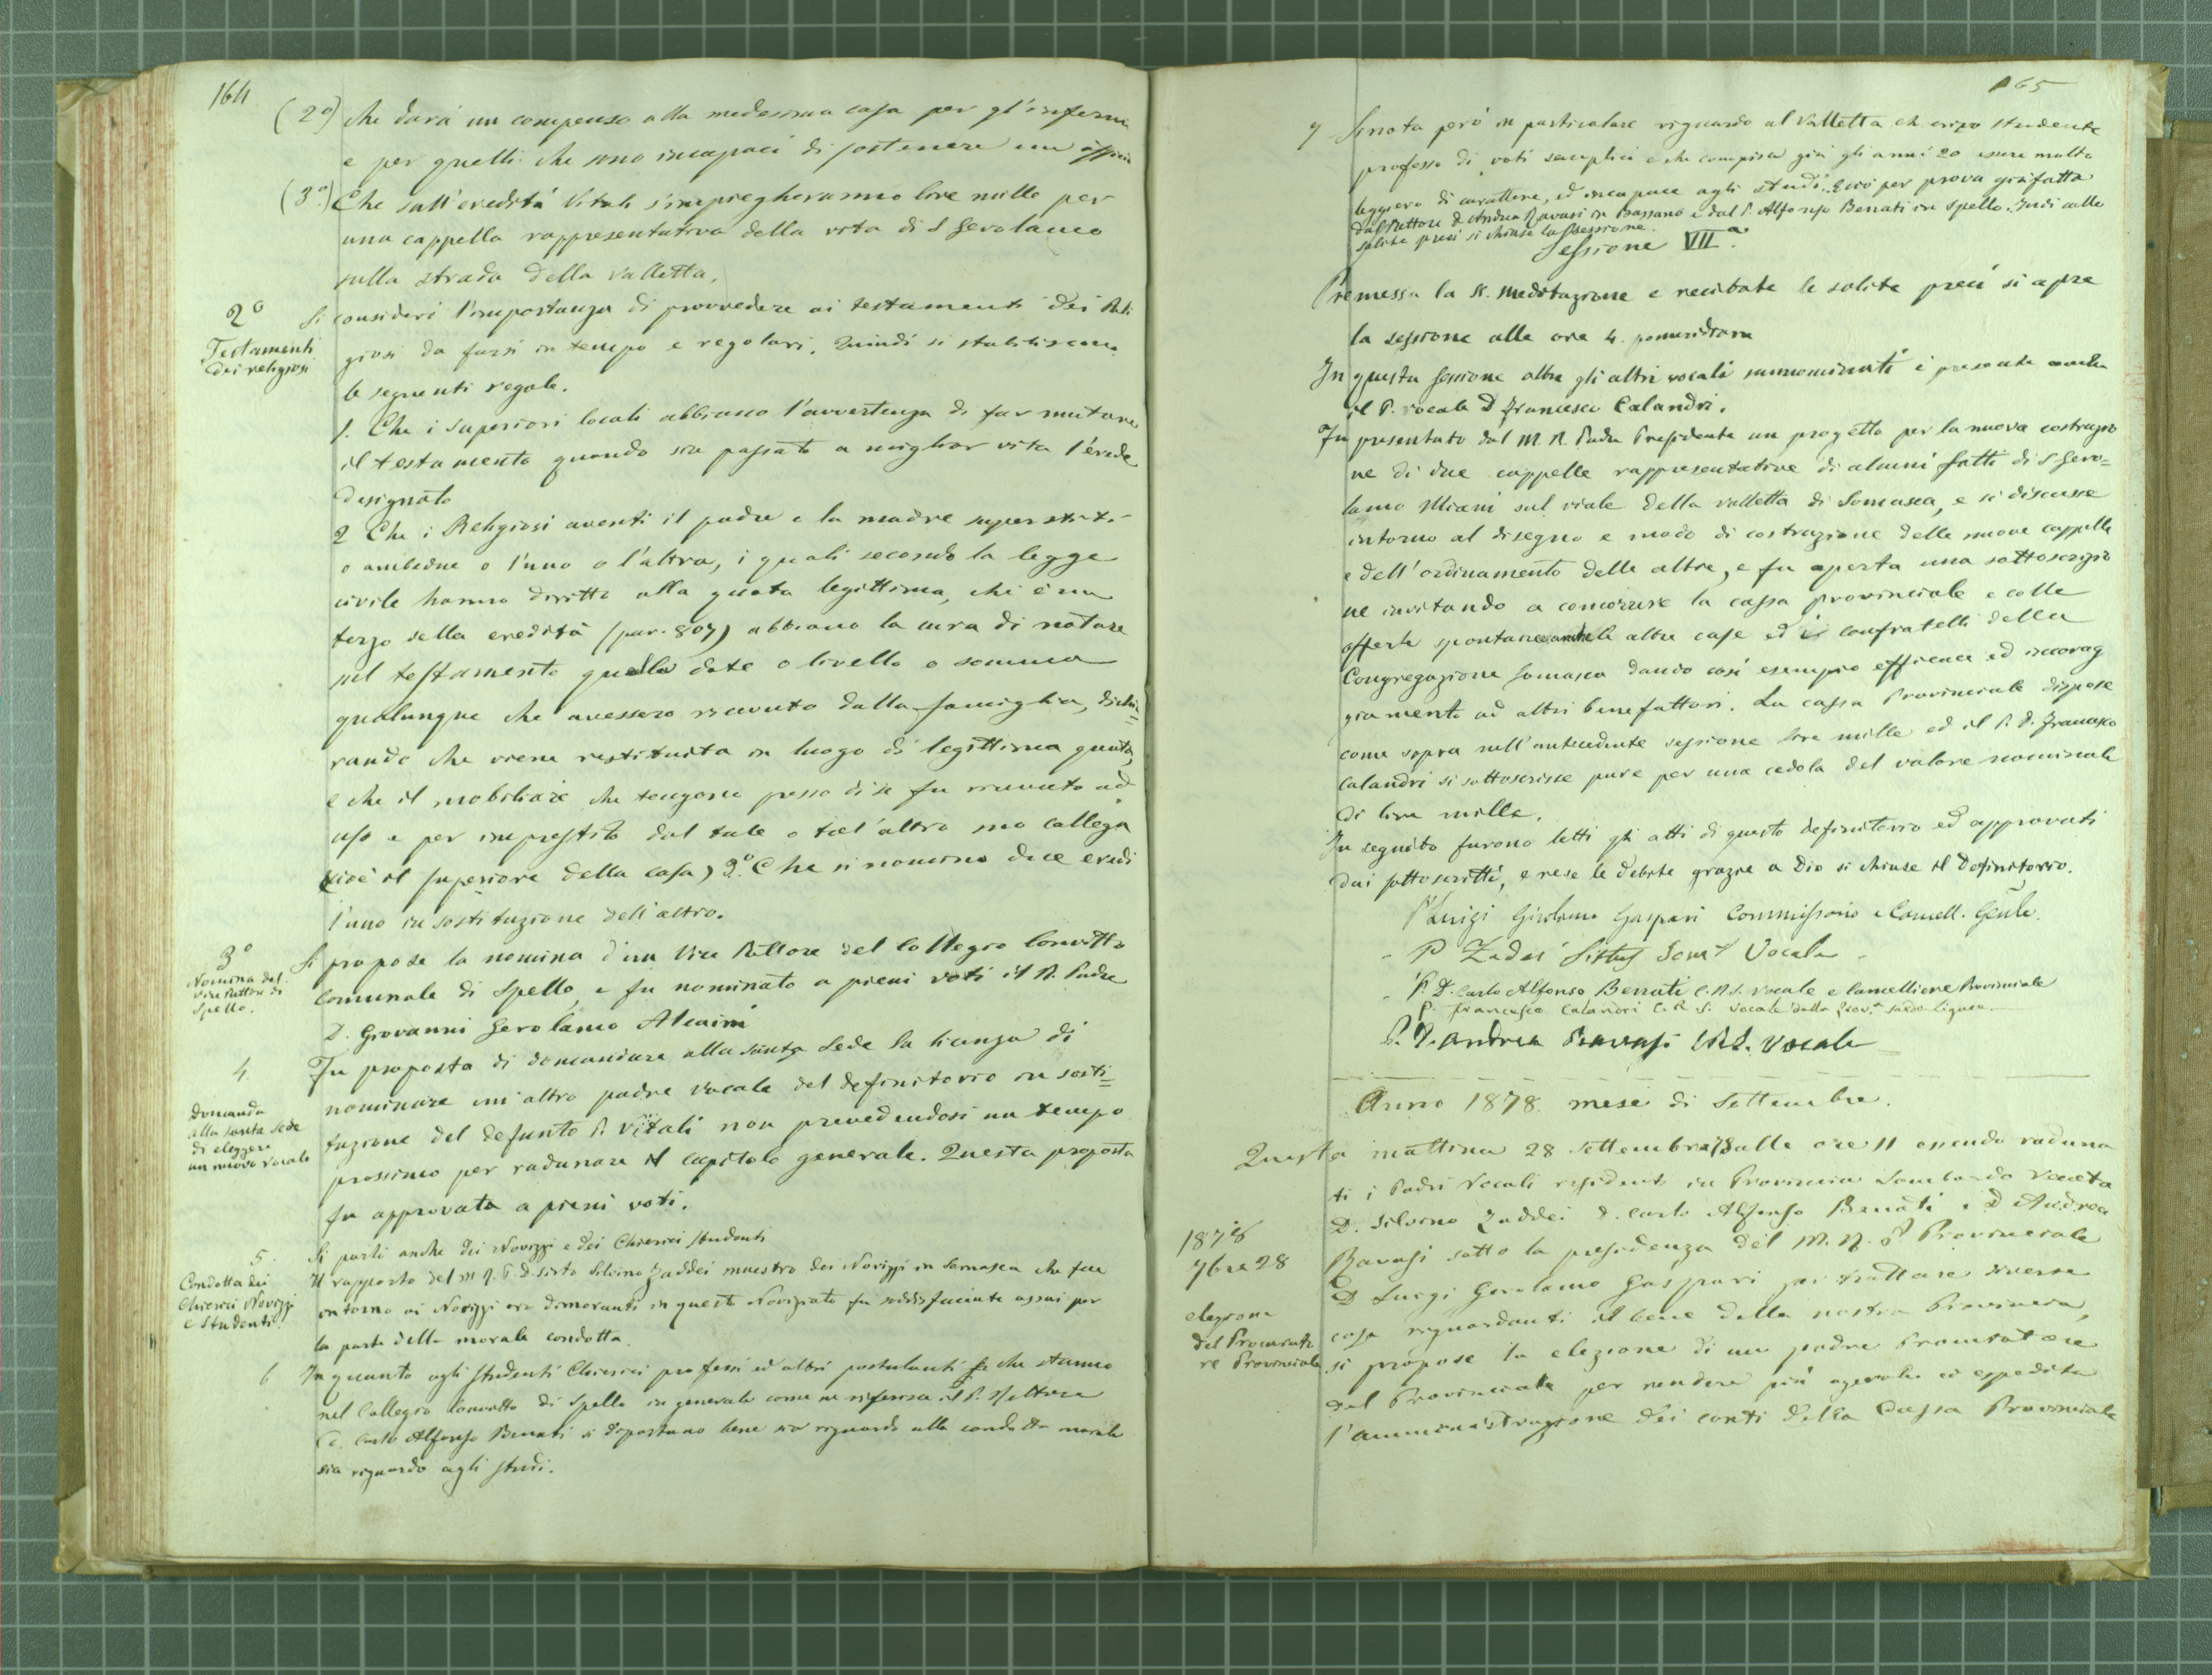 164
(2º) che darà un compenso alla medesima casa per gl'infermi
e per quelli che sono incapaci di sostenere un officio
(3º.) Che sull'eredità Vitali s'impiegheranno lire mille per
una cappella rappresentativa della vita di S Gerolamo
sulla strada della Valletta.
2º
Testamenti
dei religiosi
Si consideri l'importanza di provvedere ai testamenti dei Reli
giosi da farsi in tempo e regolari. Quindi si stabiliscono
le seguenti regole.
1. Che i superiori locali abbiano l'avvertenza di far mutare
il testamento quando sia passato a miglior vita l'erede
designato
2 Che i Religiosi aventi il padre e la madre superstiti
o ambedue o l'uno o l'altra, i quali secondo la legge
civile hanno diritto alla quota legittima, che è un
terzo della eredità (par. 807) abbiano la cura di notare
nel testamento quella dote o livello o somma
qualunque che avessero ricevuto dalla famiglia, dichia=
rando che viene restituita in luogo di legittima quota,
e che il mobiliare che tengono presso di se fu ricevuto ad
uso e per imprestito dal tale o tal'altro suo collega
(cioè il superiore della casa) 3º. Che si nomino due eredi
l'uno in sostituzione dell'altro.
3º
Nomina del
vice Rettore di
Spello.
Si propose la nomina d'un Vice Rettore del Collegio Convitto
Comunale di Spello, e fu nominato a pieni voti il R. Padre
D. Giovanni Gerolamo Alcaini
4.
Domanda
alla santa Sede
di eleggere
un nuovo vocale
Fu proposta di domandare alla Santa Sede la licenza di
nominare un'altro padre vocale del definitorio in sosti=
tuzione del defunto P. Vitali non prevedendosi un tempo
prossimo per radunare il capitolo generale. Questa proposta
fu approvata a pieni voti.
5.
Condotta dei
Chierici Novizzi
e studenti.
Si parlò anche dei Novizzi e dei Chierici studenti
Il rapporto del M R. P. D. Sisto Silvino Zaddei maestro dei Novizzi in Somasca che fece
intorno ai Novizzi ora dimoranti in questo Noviziato fu soddisfacente assai per
la parte della morale condotta.
6 In quanto agli studenti Chierici professi ed altri postulanti che stanno
nel Collegio Convitto di Spello in generale come ne riferisce il P. Rettore
D. Carlo Alfonso Benati si diportano bene sia riguardo alla condotta morale
sia riguardo agli studi.
165
7 Si nota però in particolare riguardo al Valletta chierico studente
professo di voti semplici e che compisce già gli anni 20 essere molto
leggero di carattere, ed incapace agli studi. Ciò per prova già fatta
dal Rettore D. Andrea Ravasi in Bassano e dal P. Alfonso Benati in Spello. Indi colle
solite preci si chiuse la sessione.
Sessione VIIª.
Premessa la S. Meditazione e recitate le solite preci si apre
la sessione alle ore 4. pomeridiane
In questa sessione oltre gli altri vocali sunnominati è presente anche
il P. vocale D Francesco Calandri.
Fu presentato dal M. R. Padre Presidente un progetto per la nuova costruzio
ne di due cappelle rappresentative di alcuni fatti di S Gero=
lamo Miani sul viale della valletta di Somasca, e si discusse
intorno al disegno e modo di costruzione delle nuove cappelle
e dell'ordinamento delle altre, e fu aperta una sottoscrizio
ne invitando a concorrere la cassa provinciale e colle
offerte spontanee anche le altre case ed i confratelli della
Congregazione Somasca dando così esempio efficace ed incorag
giamento ad altri benefattori. La cassa Provinciale dispose
come sopra nell'antecedente sessione lire mille ed il P. D. Francesco
Calandri si sottoscrisse pure per una cedola del valore nominale
di lire mille.
In seguito furono letti gli atti di questo definitorio ed approvati
dai sottoscritti, e rese le debite grazie a Dio si chiuse il Definitorio.
P Luigi Girolamo Gaspari Commissario e Cancell. Genle.
P Zadei Sistus Vocale
P. D. Carlo Alfonso Benati C.R.S. vocale e Cancelliere Provinciale
P. Francesco Calandri C. R. S. Vocale della Prov.ª sardo-ligure
P. D. Andrea Ravasi C.R.S. Vocale
Anno 1878. mese di Settembre.
1878
7bre 28
elezione
del Procurato
re Provinciale
Questa mattina 28 Settembre 78 alle ore 11 essendo raduna
ti i Padri Vocali residenti in Provincia Lombardo Veneta
D. Silvino Zaddei D. Carlo Alfonso Benati e D Andrea
Ravasi sotto la presidenza del M. R. P Provinciale
D Luigi Gerolamo Gaspari per trattare diverse
cose riguardanti il bene della nostra Provincia,
si propose la elezione di un padre Procuratore
del Provinciale per rendere più agevole ed espedita
l'amministrazione dei conti della Cassa Provinciale